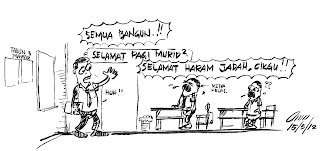 SEMUA BANGUN..!!
SELAMAT PAGI MURID2
SELAMAT HARAM JADAH, CIKGU..!!
TAHUN 3
HUH!!
KETUA KELAS.
15/5/12